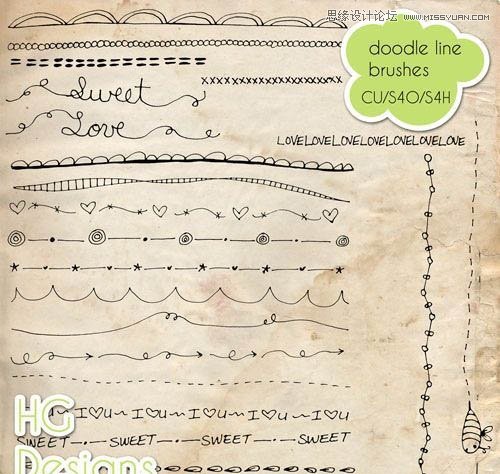 思缘设计论坛 WWW.MISSYUAN.COM
doodle line
brushes
CU/S4O/S4H
Sweet
Love
LOVELOVELOVELOVELOVELOVELOVE
I♡u~I♡u~I♡u~I♡u
SWEET—•—SWEET—•—SWEET—•—SWEET
HG
Designs